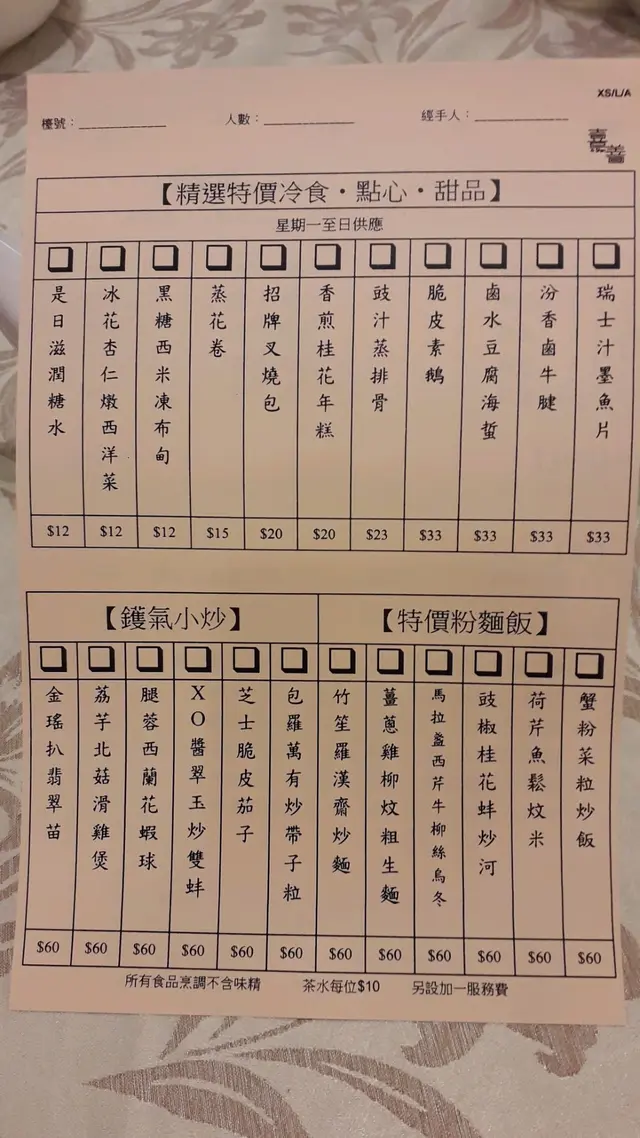 XS/L/A
檯號：____________ 人數：____________ 經手人：____________
嘉
善
【精選特價冷食・點心・甜品】
星期一至日供應
瑞士汁墨魚片
汾香鹵牛腱
鹵水豆腐海蜇
脆皮素鵝
豉汁蒸排骨
香煎桂花年糕
招牌叉燒包
蒸花卷
黑糖西米凍布甸
冰花杏仁燉西洋菜
是日滋潤糖水
$12 $12 $12 $15 $20 $20 $23 $33 $33 $33 $33
【鑊氣小炒】 【特價粉麵飯】
蟹粉菜粒炒飯
荷芹魚鬆炆米
豉椒桂花蚌炒河
馬拉盞西芹牛柳絲烏冬
薑蔥雞柳炆粗生麵
竹笙羅漢齋炒麵
包羅萬有炒帶子粒
芝士脆皮茄子
XO醬翠玉炒雙蚌
腿蓉西蘭花蝦球
荔芋北菇滑雞煲
金瑤扒翡翠苗
$60 $60 $60 $60 $60 $60 $60 $60 $60 $60 $60 $60
所有食品烹調不含味精 茶水每位$10 另設加一服務費